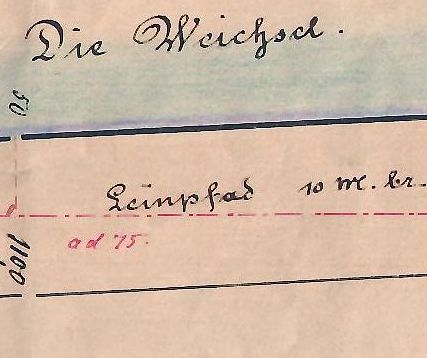 Die Weichsel.
50
Leinpfad 10 M. br.
ad 75.
1100